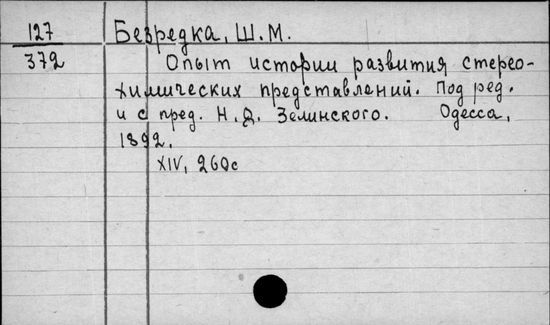 127 Безредка, Ш.М.
372 Опыт истории развития стерео-
химических представлений. Под ред.
и с пред. Н.Д. Зелинского. Одесса,
1892.
XIV, 260с